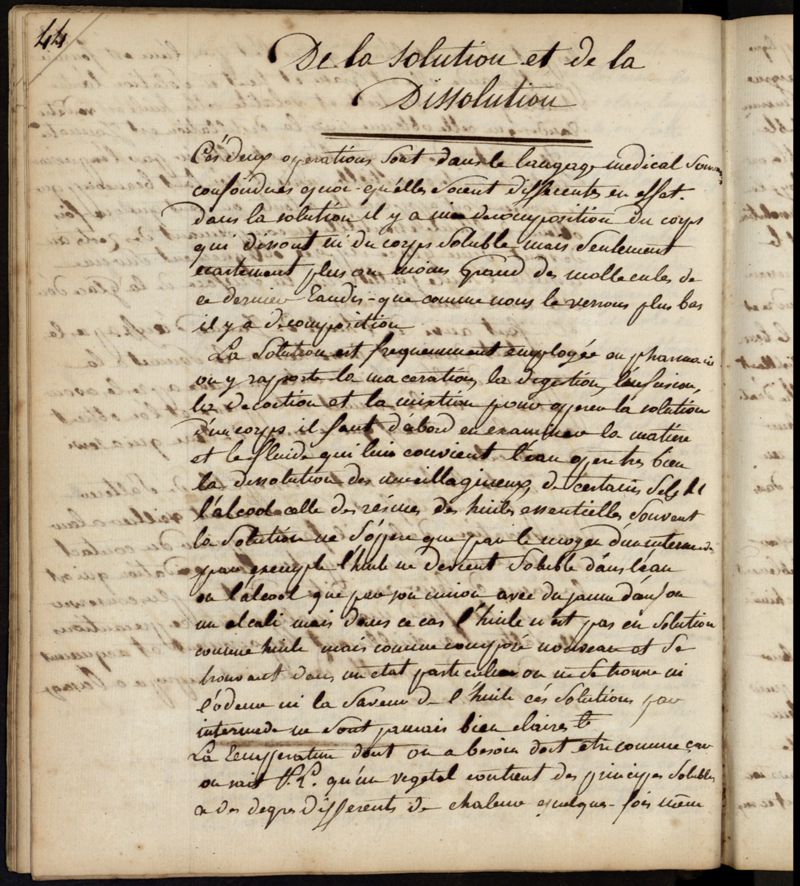 44
De la solution et de la
Dissolution
Ces deux operations sont dans le langage medical souv
confondues quoi-qu'elles soient differentes en effet.
Dans la solution il y a decomposition du corps
qui dissout ni du corps soluble mais seulement
ecartement plus ou moins grand des mollecules de
ce dernier tandis-que comme nous le verrons plus bas
il y a decomposition
La solution est frequemment employée en pharmacie
on y rapporte la maceration, la digestion, l'infusion,
la decoction et la mixtion pour operer la solution
d'un corps il faut d'abord en examiner la matiere
et le fluide qui lui convient l'eau opere tres bien
la dissolution des mucillagineux, de certains sels et
l'alcool celle des résines des huiles essentielles souvent
la solution ne s'opere que par le moyen d'un intermede
par exemple l'huile ne devient soluble dans l'eau
ou l'alcool que par son union avec du jaune d'œuf ou
un alcali mais dans ce cas l'huile n'est pas en solution
comme huile mais comme composé nouveau et se
trouvant dans un etat particulier on ne se trouve ni
l'odeur ni la saveur de l'huile ces solutions par
intermede ne sont jamais bien claires
La temperature dont on a besoin doit etre comme car
on sait qu'un vegetal contient des principes solubles
a des degres differents de chaleur et quelque-fois même